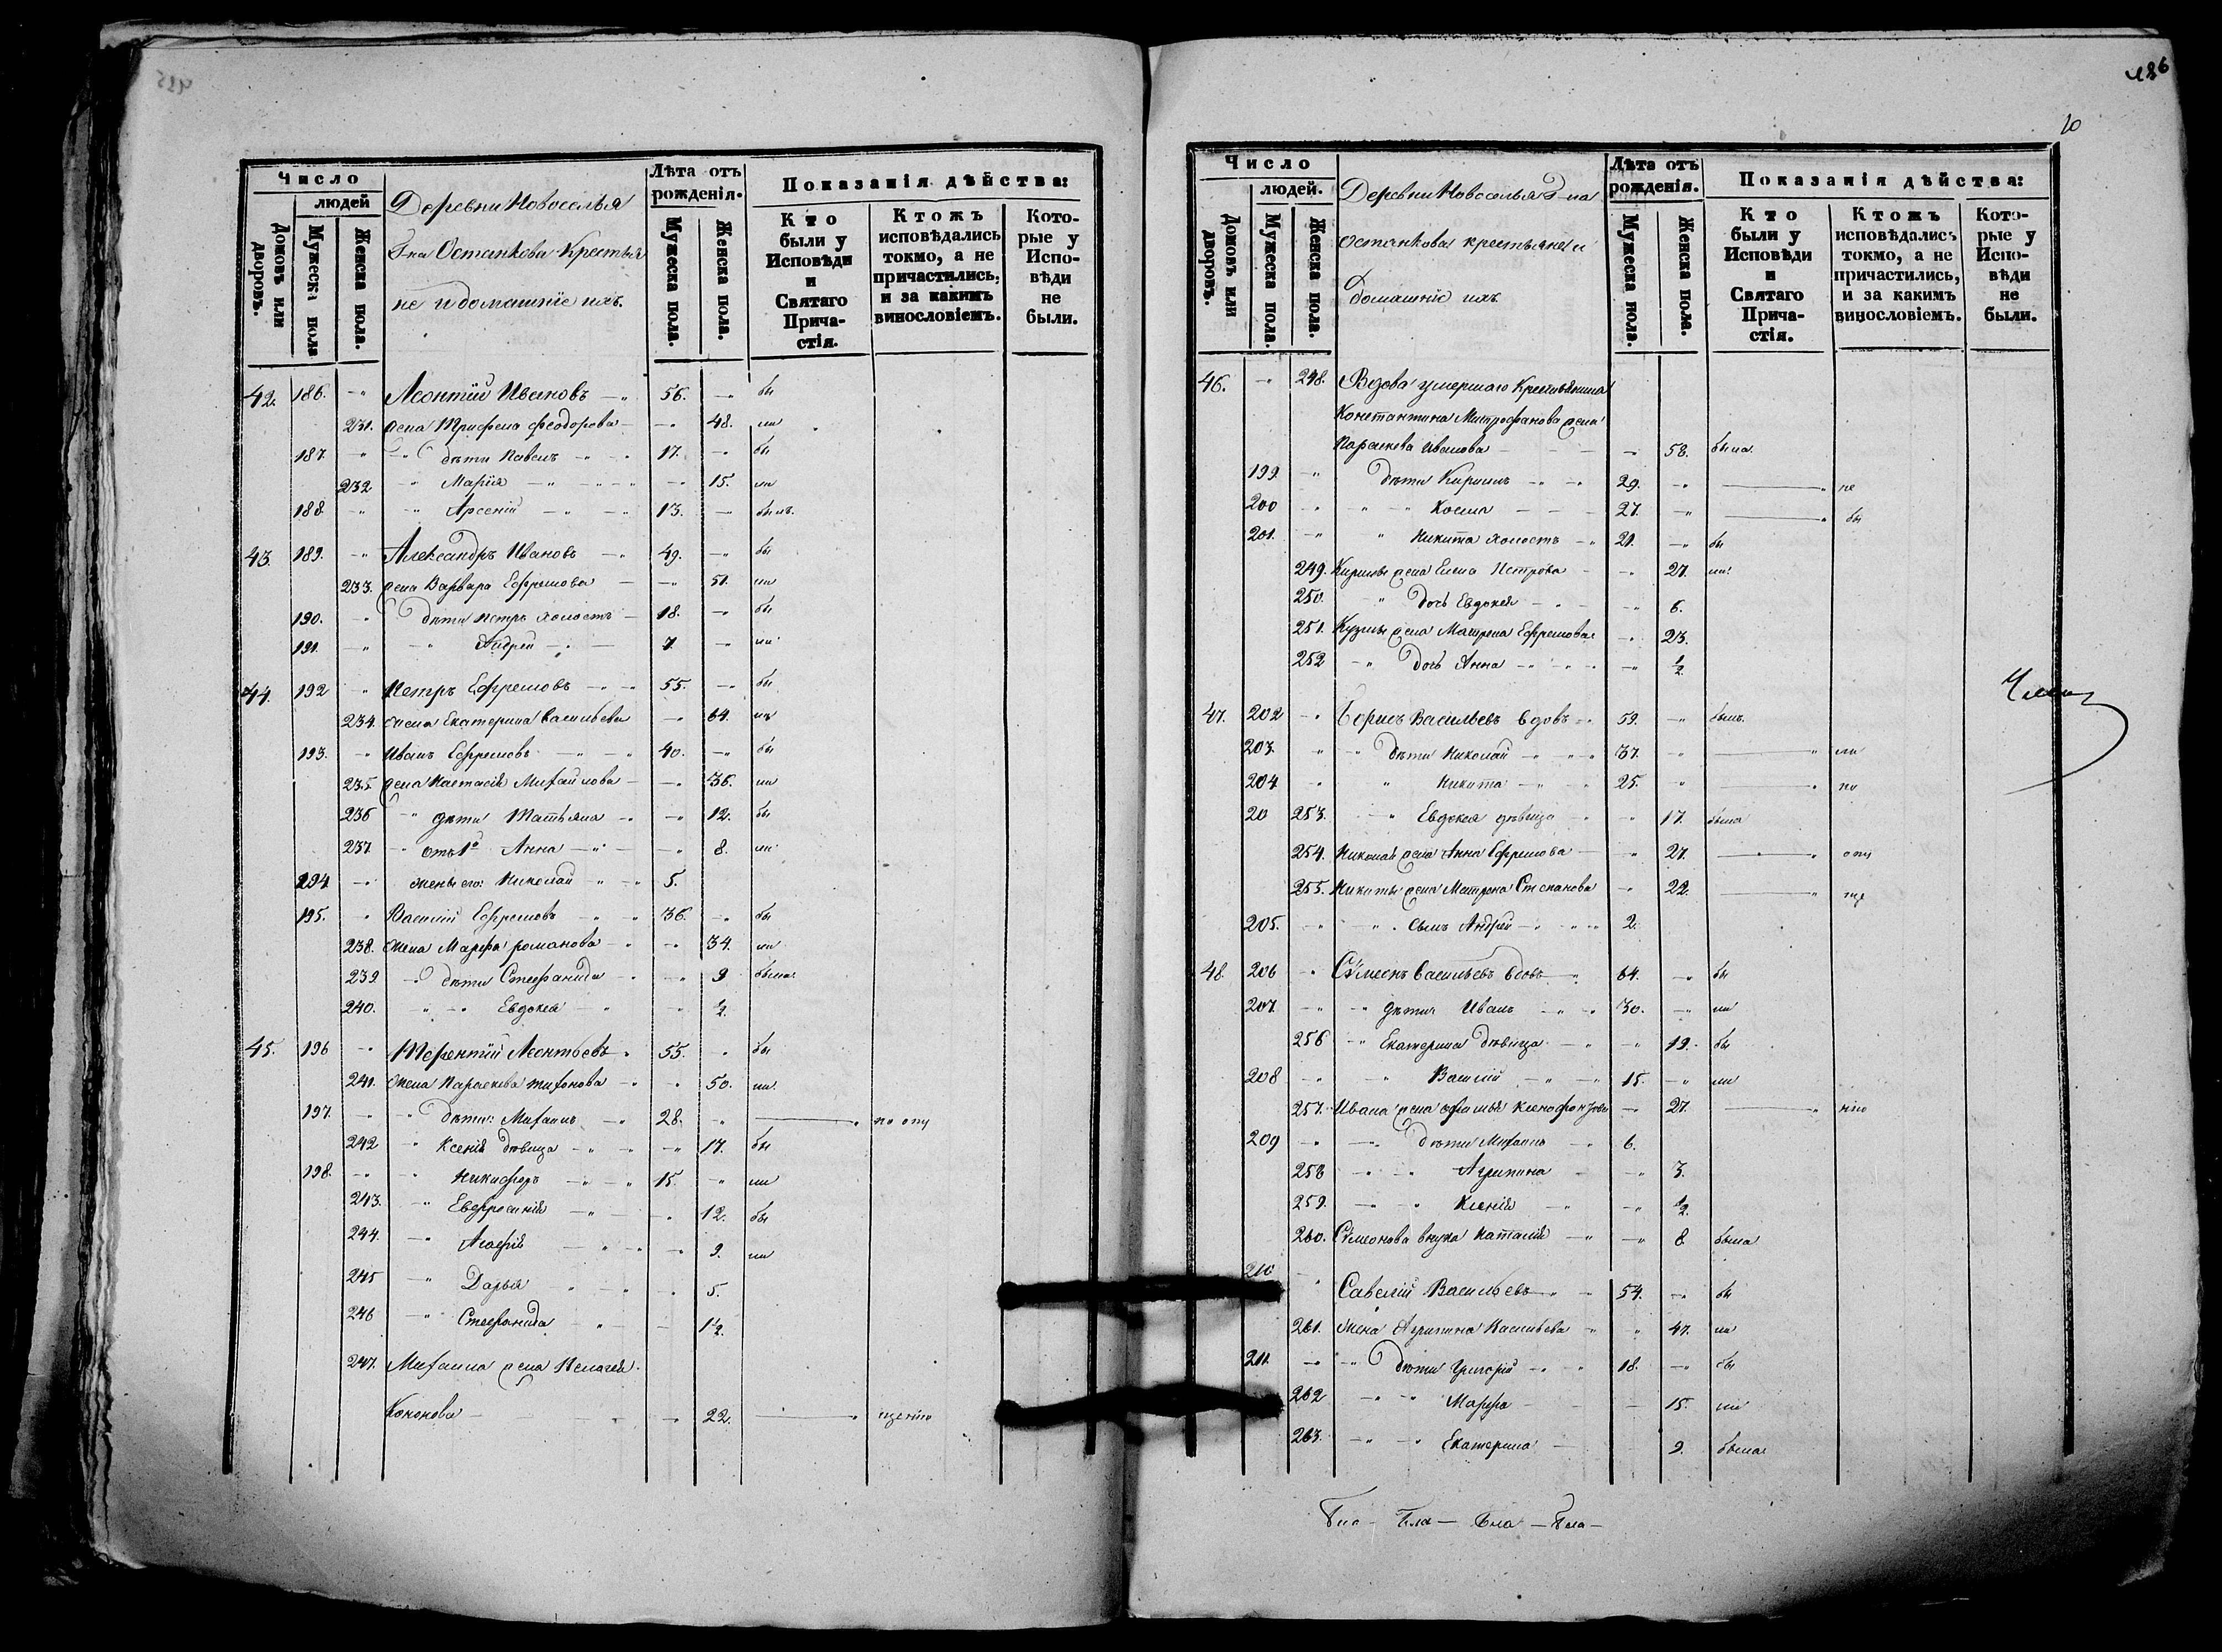 425
Число
людей
Домовъ или дворовъ.
Мужеска пола
Женска пола.
Деревни Новоселья
Г-на Останкова Крестья
не и домашніе ихъ.
Лѣта отъ рожденія.
Мужеска пола.
Женска пола.
Показанія дѣйства:
Кто были у Исповѣди и Святаго Прича-стія.
Ктожъ исповѣдались токмо, а не причастились, и за какимъ винословіемъ.
Кото-рые у Испо-вѣди не были.
42. 186. -" Леонтій Ивановъ -" 56. -" бы
231. жена Трифена Феодорова -" 48. ли
187. -" -" дѣти Павелъ -" -" 17. -" бы
232 -" Марія -" -" -" 15. ли
188. -" -" Арсеній -" -" 13. -" былъ.
43. 189. -" Александръ Ивановъ -" 49. -" бы
233. жена Варвара Ефремова -" 51. ли
190. -" дѣти Петръ холостъ - 18. -" бы
191. -" -" Андрей -" 7. -" ли
44. 192 " Петръ Ефремовъ -" -" 55. -" бы
234. жена Екатерина Васильева -" 64. ли
193. -" Иванъ Ефремовъ -" -" 40. -" бы
235 жена Настасія Михайлова -" 36. ли
236 -" дѣти Татьяна -" -" 12. бы
237. -" отъ 1й Анна -" -" 8. ли
194 -" жены его: Николай -" -" 5.
195. " Василій Ефремовъ -" " 36. -" бы
238. жена Марфа Романова -" -" 34. ли
239 -" дѣти Стефанида -" -" 9 была.
240. -" -" Евдокея -" " -" 1/2.
45. 196 -" Терентій Леонтьевъ " 55. " бы
241. жена Параскева Тихонова -" " 50. ли
197. -" -" дѣти: Михаилъ -" 28. " по отлу
242 " Ксенія дѣвица -" " -" 17. бы
198. -" -" Никифоръ -" " 15. " ли
243. -" Евфросинія -" " 12. бы
244. -" Агафія -" " -" 9. ли
245 -" Дарья " -" " 5.
246 -" Стефанида -" 1 1/2.
247. Михаила жена Пелагея
Кононова " -" 22.
486
10
Число
людей.
Домовъ или дворовъ.
Мужеска пола.
Женска пола.
Деревни Новоселья Г-на
Останкова крестьяне и
домашніе ихъ
Лѣта отъ рожденія.
Мужеска пола.
Женска пола.
Показанія дѣйства:
Кто были у Исповѣди и Святаго Прича-стія.
Ктожъ исповѣдались токмо, а не причастились, и за какимъ винословіемъ.
Кото-рые у Испо-вѣди не были.
46. -" 248. Вдова умершаго Крестьянина
Константина Митрофанова жена
Параскева Иванова -" 58. была.
199. -" дѣти Кирилъ -" -" 29. -"
200 " -" Косма 27. -" бы
201. -" " Никита холостъ -" 21. -" бы
249. Кирилы жена Елена Петрова -" 27. ли
250. -" дочь Евдокея -" -" 6.
251. Кузмы жена Матрена Ефремова -" 23.
252 -" дочь Анна -" -" -" 1/2
47. 202 -" Борисъ Васильевъ вдовъ -" 59. -" былъ.
203. " -" дѣти Николай -" -" 37. -"
204 " " Никита -" " 25. "
20 253. -" Евдокея дѣвица -" " 17. была
254. Николая жена Анна Ефремова -" 27.
255. Никиты жена Матрона Степанова -" 22.
205. -" -" сынъ Андрей -" -" 2.
48. 206 -" Сѵмеонъ Васильевъ вдовъ -" 64. -" бы
207. -" -" дѣти Иванъ -" -" 30. -" ли
256 -" Екатерина дѣвица -" -" 19. бы
208 -" -" Василій -" -" 15. -" ли
257. Ивана жена Ксенофонтова -" 27.
209 -" -" дѣти Михаилъ -" 6.
258 -" -" Агрипина -" 3.
259. -" -" Ксенія -" -" 1/2.
260. Сѵмеонова внука Наталія -" -" 8 была
210. -" Савелій Васильевъ -" 54. -" бы
261. жена Агрипина Васильева " " 47. ли
211. -" -" дѣти Григорій -" " 18. -" бы
262 -" -" Марфа - 15. ли
263. -" -" Екатерина - 9. была